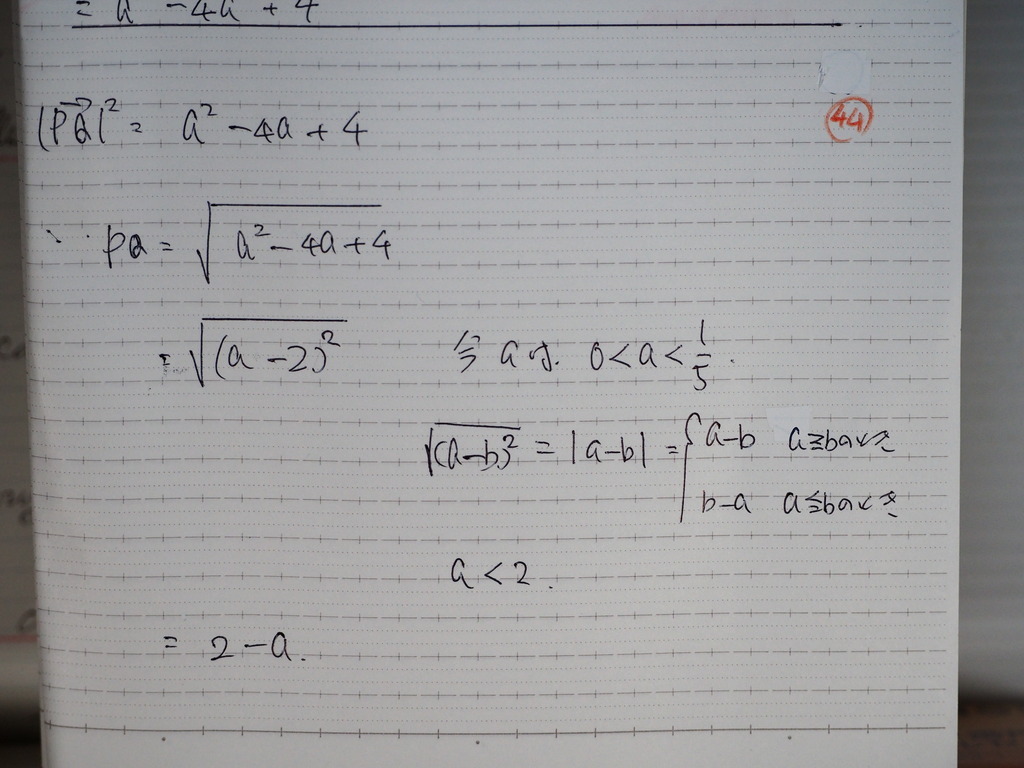 = a² - 4a + 4
44
|PQ→|² = a² - 4a + 4
∴ PQ = √(a² - 4a + 4)
= √(a - 2)² 今 aは、0 < a < 1/5.
√(a-b)² = |a-b| = { a-b a≧bのとき
b-a a≦bのとき
a < 2.
= 2 - a.